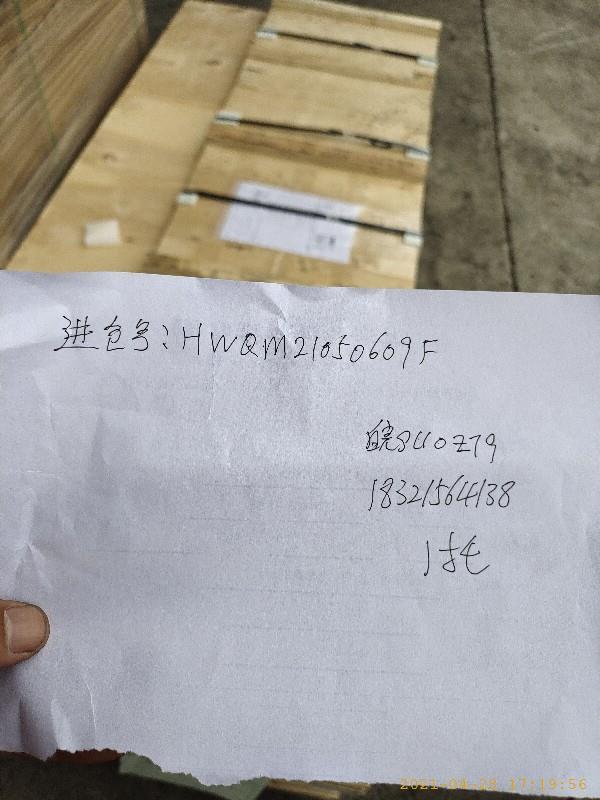 进仓号:HWQM21050609F
皖SU0Z79
18321564138
1托
2021-04-28 17:19:56